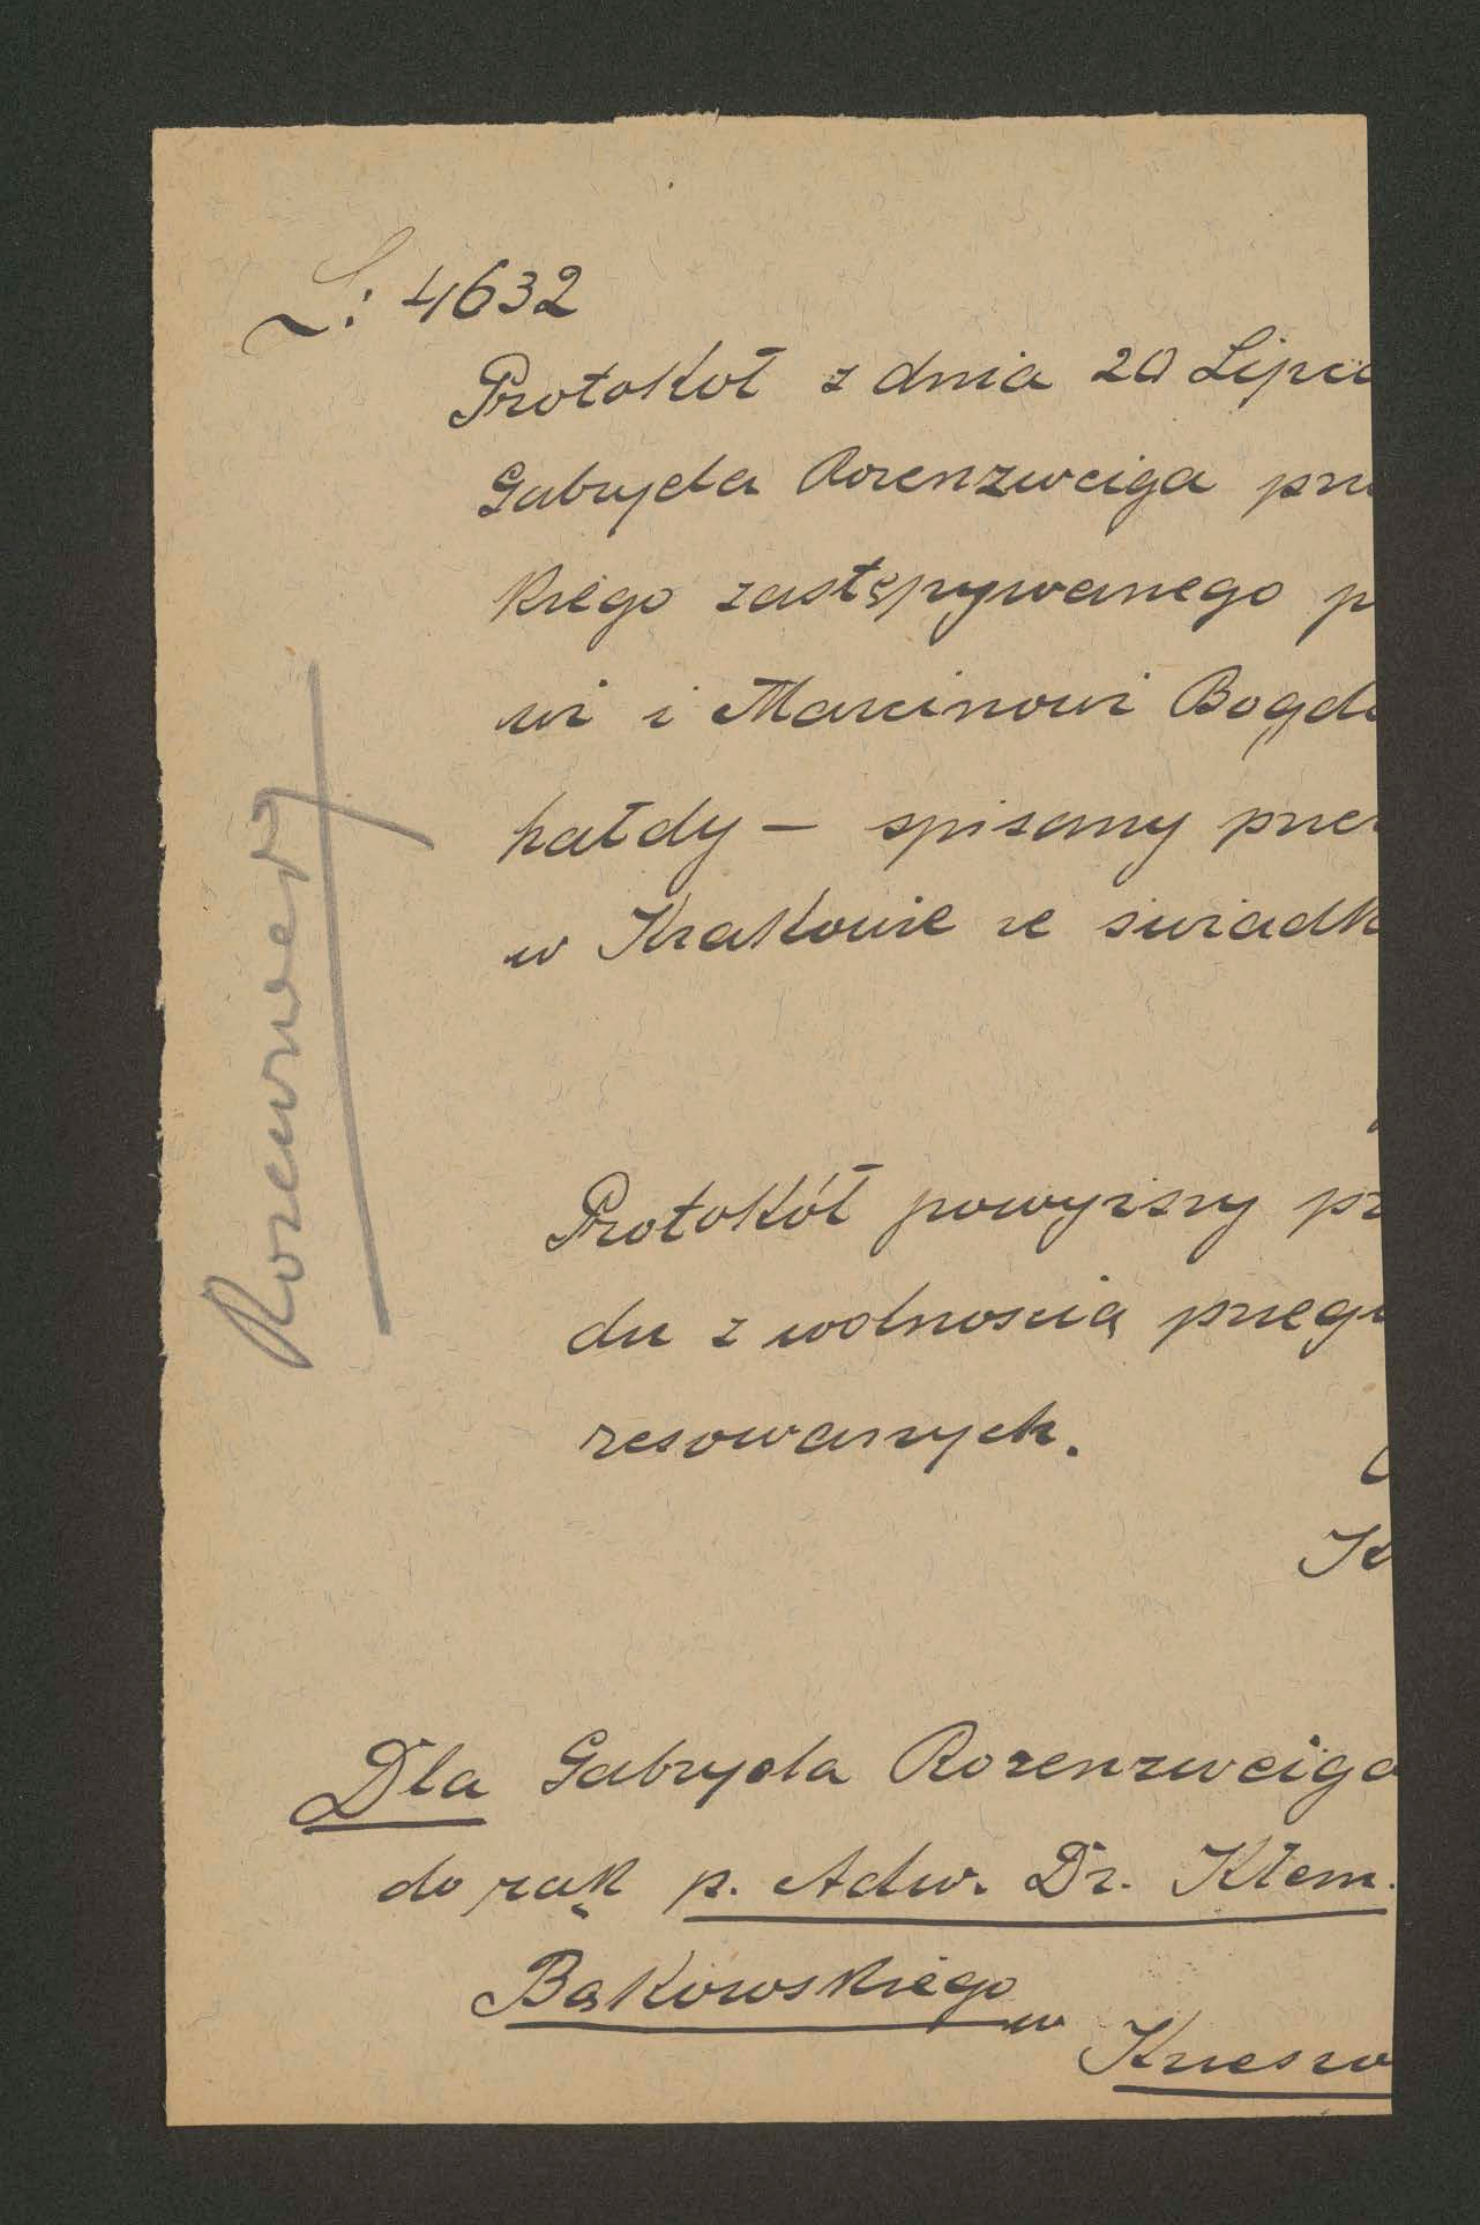 L: 4632
Protokół z dnia 20 Lipca
Gabryela Rozenzweiga prz
kiego zastępywanego p
wi i Marcinowi Bogda
hałdy – spisany prze
w Krakowie ze świadk
Protokół powyższy prz
du z wolnością przeg
resowanych.
K
Dla Gabryela Rozenzweiga
do rąk p. Adw. Dr. Klem.
Bąkowskiego w
Krzeszo